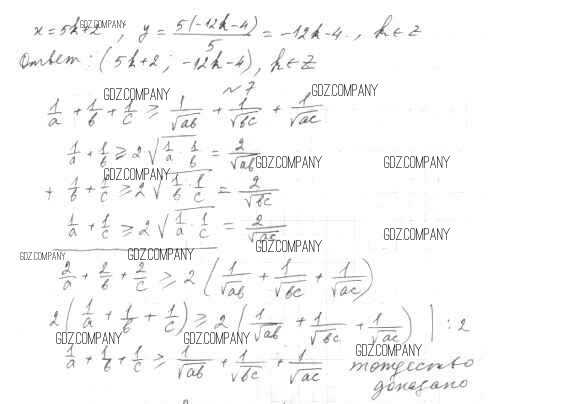 x = 5k+2, y = 5(-12k-4)/5 = -12k-4., k ∈ Z
GDZ.COMPANY
Ответ: (5k+2; -12k-4), k ∈ Z
GDZ.COMPANY
№7
GDZ.COMPANY
1/a + 1/b + 1/c ⩾ 1/√ab + 1/√bc + 1/√ac
1/a + 1/b ⩾ 2√(1/a · 1/b) = 2/√ab
GDZ.COMPANY GDZ.COMPANY GDZ.COMPANY
+ 1/b + 1/c ⩾ 2√(1/b · 1/c) = 2/√bc
1/a + 1/c ⩾ 2√(1/a · 1/c) = 2/√ac
GDZ.COMPANY GDZ.COMPANY GDZ.COMPANY GDZ.COMPANY
2/a + 2/b + 2/c ⩾ 2(1/√ab + 1/√bc + 1/√ac)
2(1/a + 1/b + 1/c) ⩾ 2(1/√ab + 1/√bc + 1/√ac) | : 2
GDZ.COMPANY GDZ.COMPANY GDZ.COMPANY
1/a + 1/b + 1/c ⩾ 1/√ab + 1/√bc + 1/√ac тождество
доказано